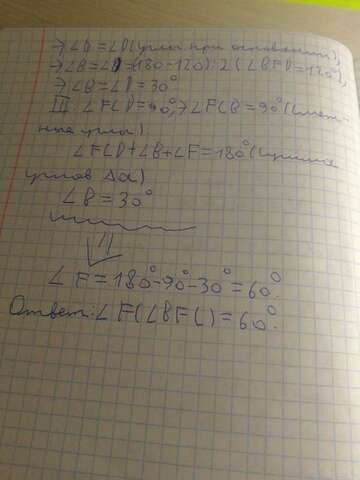 →∠B=∠D(углы при основании),
→∠B=∠D=(180-120):2(∠BFD=120°),
→∠B=∠D=30°
III ∠FCD=90°,→∠FCB=90°(смеж-
ные углы)
∠FCD+∠B+∠F=180°(сумма
углов Δа)
∠B=30°
∠F=180°-90°-30°=60°.
Ответ:∠F(∠BFC)=60°.